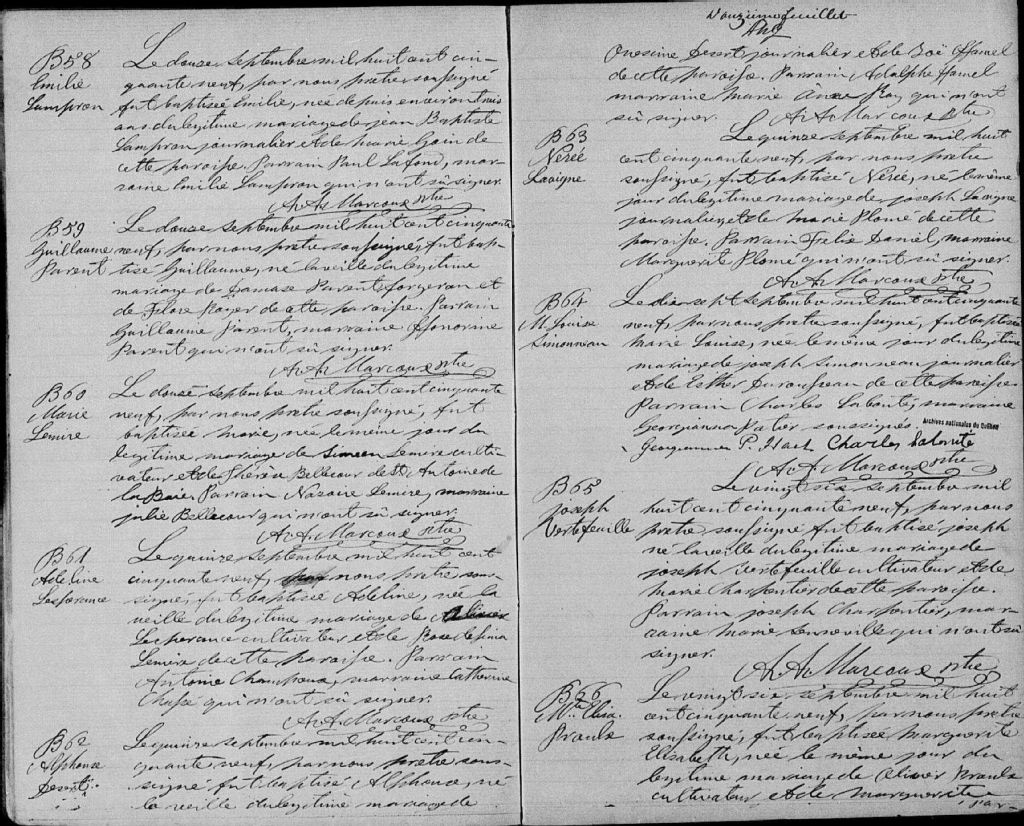 B58
Emilie
Lampron
Le douze septembre mil huit cent cin-
quante neuf, par nous prêtre soussigné
fut baptisée Emilie, née depuis environ trois
ans du légitime mariage de jean Baptiste
Lampron journalier et de marie Goin de
cette paroisse. Parrain Paul Lafond, mar-
raine Emilie Lampron qui n'ont sû signer.
A. A. Marcoux ptre
B59
Guillaume
Parent
Le douze septembre mil huit cent cinquante
neuf, par nous prêtre soussigné, fut bap-
tisé Guillaume, né la veille du légitime
mariage de Damase Parent forgeron et
de Flore Royer de cette paroisse. Parrain
Guillaume Parent, marraine Honorine
Parent qui n'ont sû signer.
A. A. Marcoux ptre
B60
Marie
Lemire
Le douze septembre mil huit cent cinquante
neuf, par nous prêtre soussigné, fut
baptisée marie, née le même jour du
légitime mariage de Simeon Lemire culti-
vateur et de Thérèse Bellecour de St Antoine de
la Baie. Parrain Nazaire Lemire, marraine
julie Bellecour qui n'ont sû signer.
A. A. Marcoux ptre
B61
Adeline
Lesperance
Le quinze septembre mil huit cent
cinquante neuf, par nous prêtre sous-
signé, fut baptisée Adeline, née la
veille du légitime mariage de
Lesperance cultivateur et de Rose de lima
Lemire de cette paroisse. Parrain
Antoine Champoux, marraine Catherine
qui n'ont sû signer.
A. A. Marcoux ptre
B62
Alphonse
Desert
Le quinze septembre mil huit cent cin-
quante neuf, par nous prêtre sous-
signé fut baptisé Alphonse, né
la veille du légitime mariage de
Douzième feuillet
Onesime Desert journalier et de Zoë Hamel
de cette paroisse. Parrain Adolphe Hamel
marraine Marie Roy qui n'ont
sû signer. A. A. Marcoux ptre
B63
Nerée
Lavigne
Le quinze septembre mil huit
cent cinquante neuf, par nous prêtre
soussigné, fut baptisé Nerée, né le même
jour du légitime mariage de joseph Lavigne
journalier, et de Marie Plome de cette
paroisse. Parrain Felix Daniel, marraine
Marguerite Plome qui n'ont sû signer.
A. A. Marcoux ptre
B64
M. Louise
Simonneau
Le dix sept septembre mil huit cent cinquante
neuf, par nous prêtre soussigné, fut baptisée
Marie Louise, née le même jour du légitime
mariage de joseph Simonneau journalier
et de Esther Durousseau de cette paroisse.
Parrain Charles Labonté, marraine
Georgianna soussignés.
Archives nationales du Québec
Georgianna P. Hart Charles Labonté
A. A. Marcoux ptre
B65
joseph
Vertefeuille
Le vingt six septembre mil
huit cent cinquante neuf, par nous
prêtre soussigné fut baptisé joseph
né la veille du légitime mariage de
joseph Vertefeuille cultivateur et de
marie Charpentier de cette paroisse.
Parrain joseph Charpentier, mar-
raine Marie qui n'ont sû
signer.
A. A. Marcoux ptre
B66
Mte Elisa.
Proulx
Le vingt six septembre mil huit
cent cinquante neuf, par nous prêtre
soussigné, fut baptisée Marguerite
Elisabeth, née le même jour du
légitime mariage de Olivier Proulx
cultivateur et de Marguerite
Par-